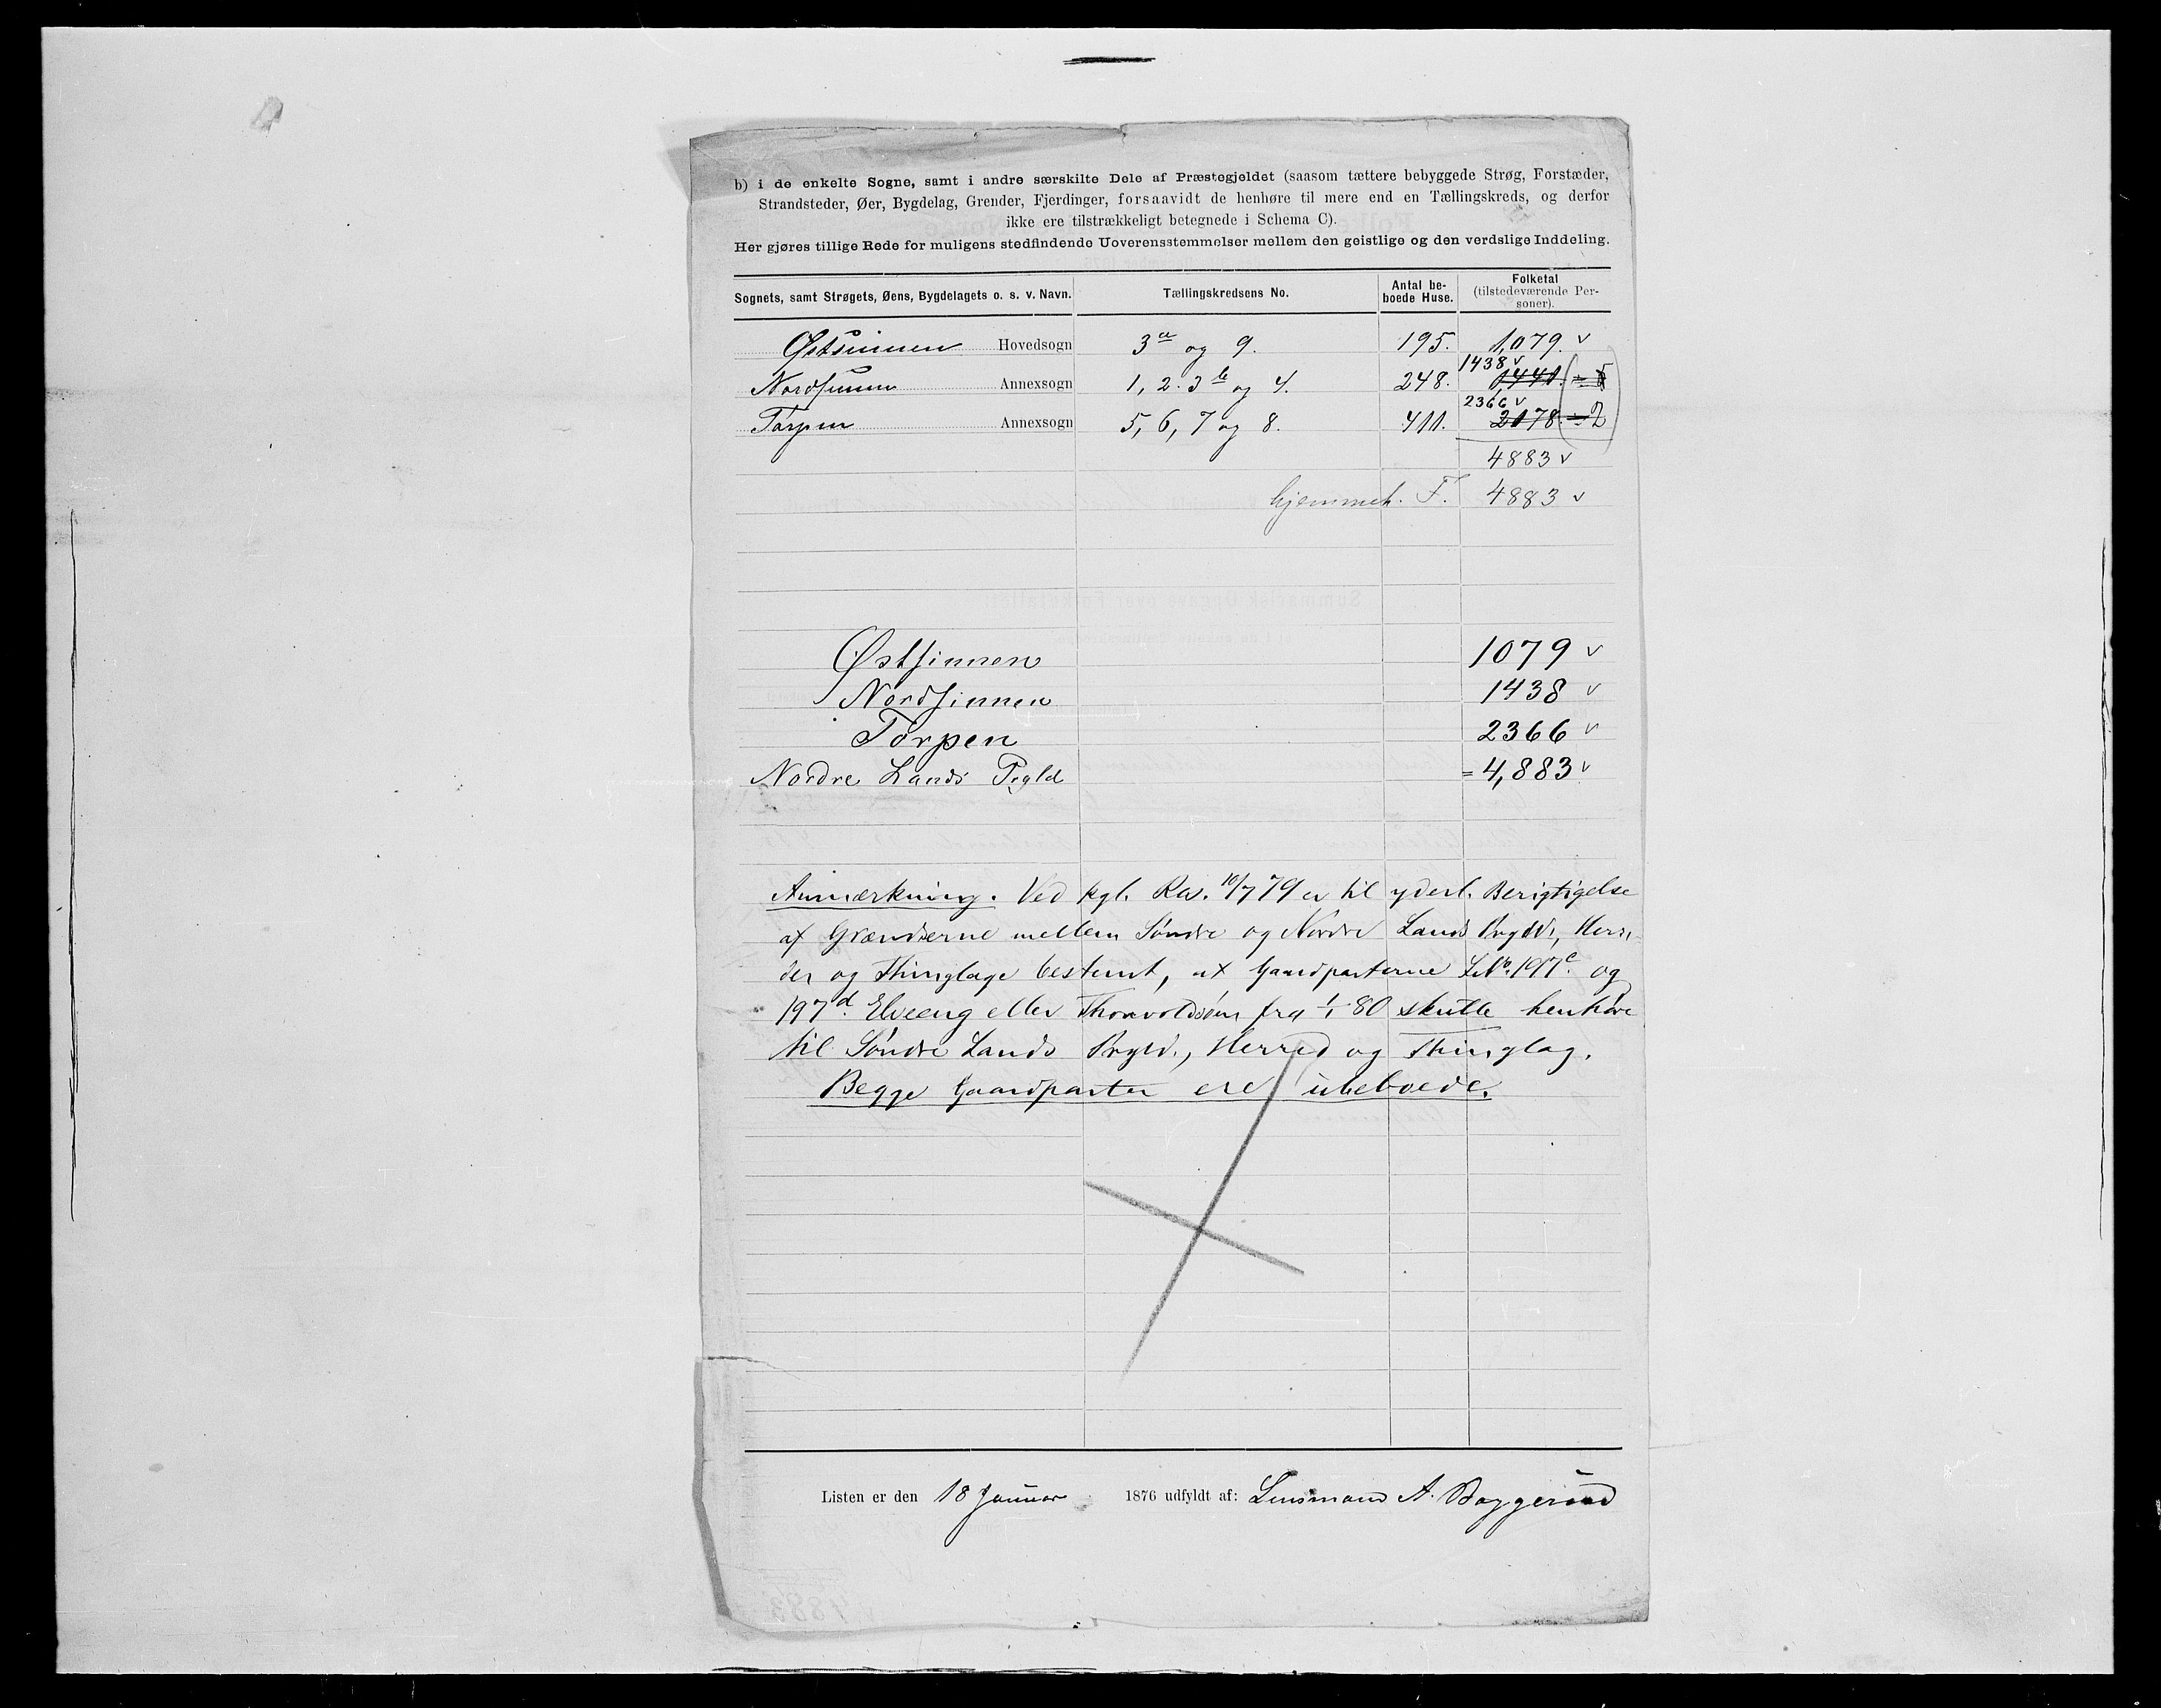 b) i de enkelte Sogne, samt i andre særskilte Dele af Præstegjeldet (saasom tættere bebyggede Strøg, Forstæder,
Strandsteder, Øer, Bygdelag, Grender, Fjerdinger, forsaavidt de henhøre til mere end en Tællingskreds, og derfor
ikke ere tilstrækkeligt betegnede i Schema C).
Her gjøres tillige Rede for muligens stedfindende Uoverensstemmelser mellem den geistlige og den verdslige Inddeling.
Sognets, samt Strøgets, Øens, Bygdelagets o. s. v. Navn. Tællingskredsens No. Antal be-boede Huse. Folketal (tilstedeværende Per-soner).
Østsinnen Hovedsogn 3a og 9. 195. 1,079. v
1438 v
Nordsinnen Annexsogn 1, 2. 3b og 4. 248. 1,441.
2366 v
Torpen Annexsogn 5, 6, 7 og 8. 411. 2178 - 2
4883 v
hjemmeh. F. 4883 v
Østsinnen 1079 v
Nordsinnen 1438 v
Torpen 2366 v
Nordre Lands Pgld = 4,883 v
Anmærkning. Ved kgl. Res. 10/7 79 er til yderl. Berigtigelse
af Grændserne mellem Søndre og Nordre Lands Prgld., Herre-
der og Thinglage bestemt, at Gaardparterne LNo. 197c. og
197d. Elveeng eller Thorvoldsøen fra 1/1 80 skulle henhøre
til Søndre Lands Prgld., Herred og Thinglag.
Begge Gaardparter ere ubeboede.
Listen er den 18 Januar 1876 udfyldt af: Lensmand A. Baggerud